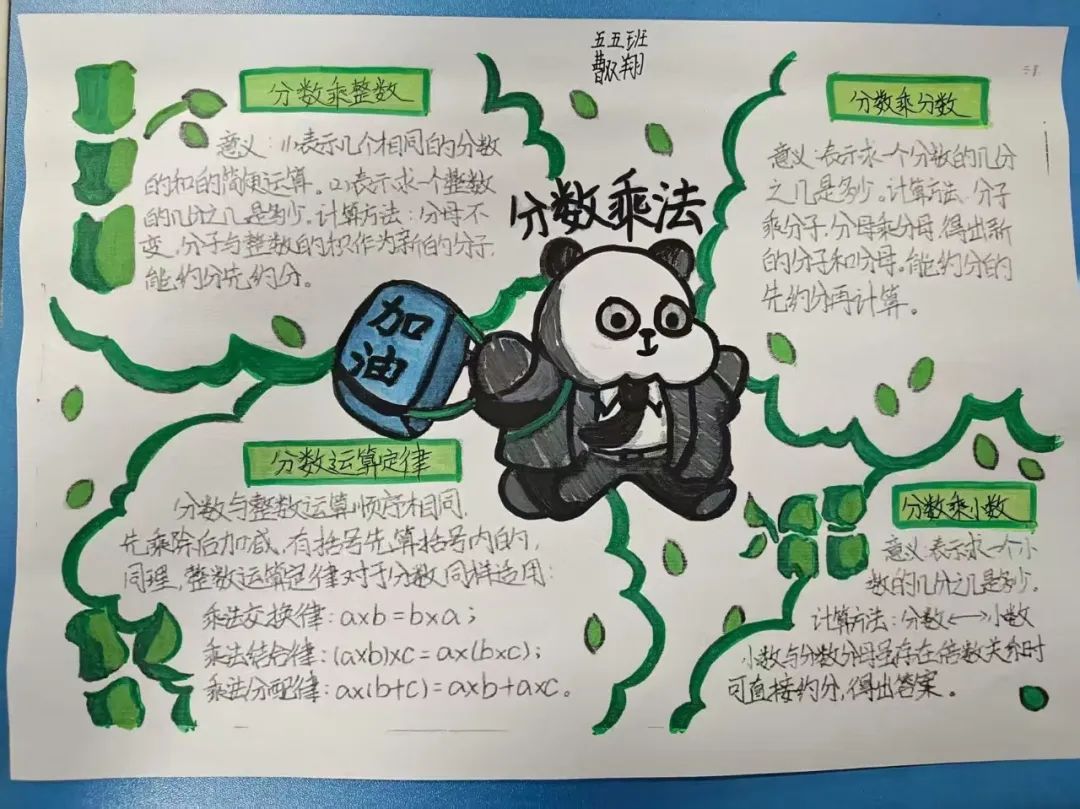 五五班
曹双翔
分数乘法
加
油
分数乘整数
意义:(1)表示几个相同的分数
的和的简便运算。(2)表示求一个整数
的几分之几是多少。计算方法:分母不
变,分子与整数的积作为新的分子,
能约分先约分。
分数乘分数
意义:表示求一个分数的几分
之几是多少。计算方法:分子
乘分子,分母乘分母,得出新
的分子和分母。能约分的
先约分再计算。
分数运算定律
分数与整数运算顺序相同,
先乘除后加减,有括号先算括号内的,
同理,整数运算定律对于分数同样适用:
乘法交换律:a×b=b×a;
乘法结合律:(a×b)×c=a×(b×c);
乘法分配律:a×(b+c)=a×b+a×c。
分数乘小数
意义:表示求一个小
数的几分之几是多少。
计算方法:分数←→小数
小数与分数分母存在倍数关系时
可直接约分,得出答案。